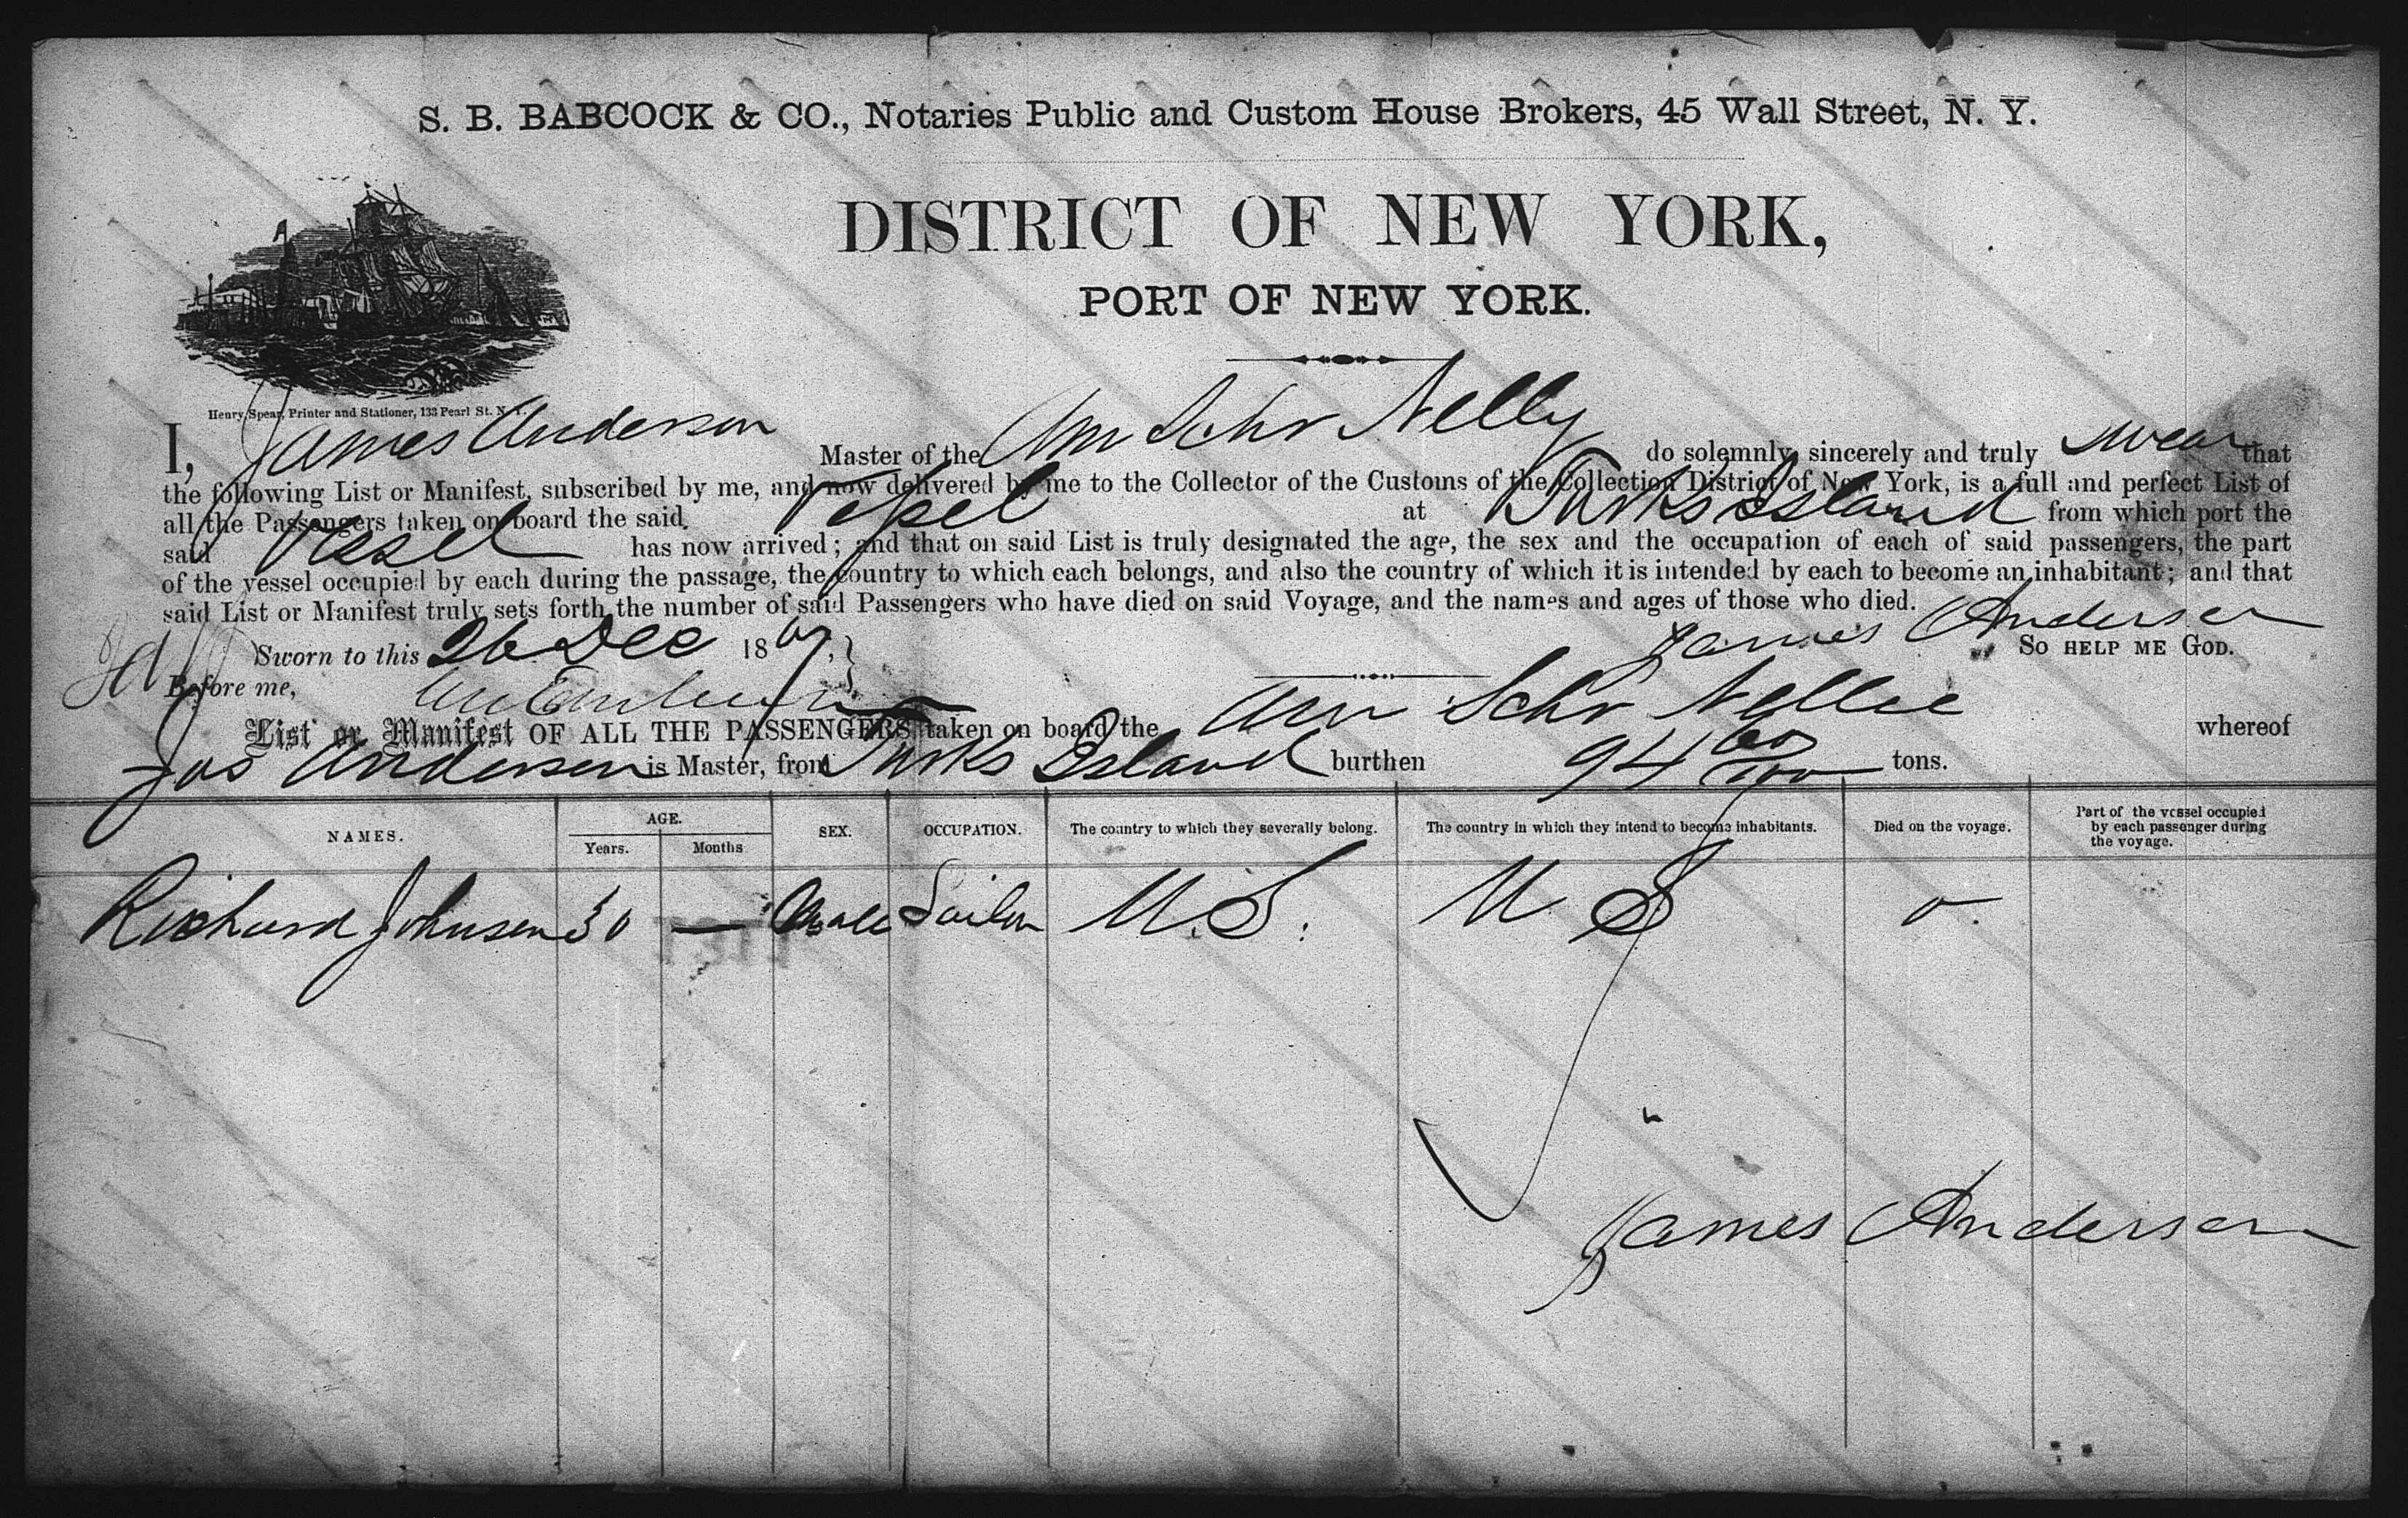 S. B. BABCOCK & CO., Notaries Public and Custom House Brokers, 45 Wall Street, N. Y.
DISTRICT OF NEW YORK,
PORT OF NEW YORK.
Henry Spear, Printer and Stationer, 133 Pearl St. N. Y.
I, James Anderson Master of the Am Schr Nelly do solemnly, sincerely and truly swear that
the following List or Manifest, subscribed by me, and now delivered by me to the Collector of the Customs of the Collection District of New York, is a full and perfect List of
all the Passengers taken on board the said Vessel at Turks Island from which port the
said Vessel has now arrived; and that on said List is truly designated the age, the sex and the occupation of each of said passengers, the part
of the vessel occupied by each during the passage, the country to which each belongs, and also the country of which it is intended by each to become an inhabitant; and that
said List or Manifest truly sets forth the number of said Passengers who have died on said Voyage, and the names and ages of those who died.
James Anderson
Sworn to this 26 Dec 1867, SO HELP ME GOD.
Before me,
List or Manifest OF ALL THE PASSENGERS taken on board the Am Schr Nellie whereof
Jas Anderson is Master, from Turks Island burthen 94 60/100 tons.
NAMES. AGE. Years. Months SEX. OCCUPATION. The country to which they severally belong. The country in which they intend to become inhabitants. Died on the voyage. Part of the vessel occupied by each passenger during the voyage.
Richard Johnson 30 — Male Sailor U.S. U S o.
James Anderson